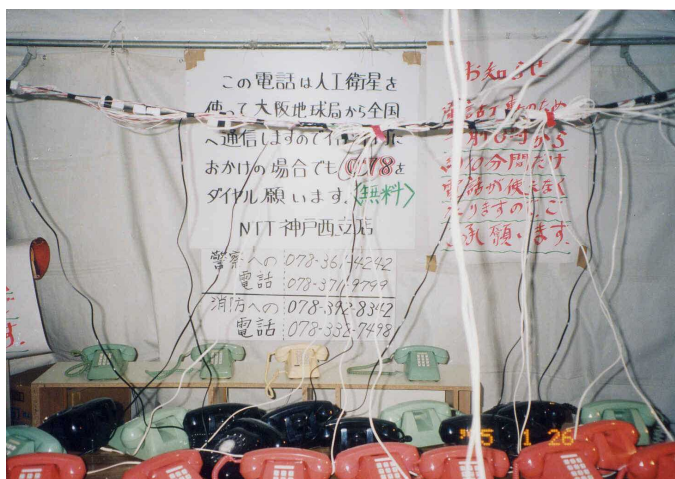 この電話は人工衛星を
使って大阪地球局から全国
へ通信しますので
おかけの場合でも(078)を
ダイヤル願います.〈無料〉
NTT神戸西支店
警察への 078-361-4242
電話 078-371-9799
消防への 078-392-8342
電話 078-332-7498
お知らせ
電話工事のため
10分間だけ
電話が使えなく
なりますのでご
了承願います.
す.
'95 1 26